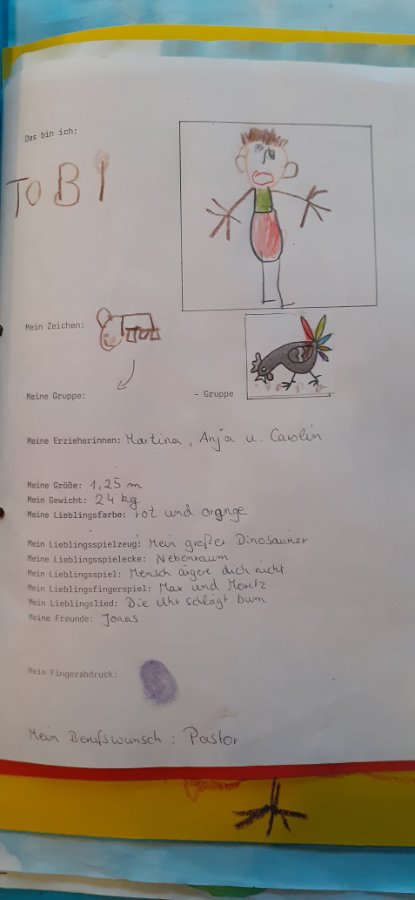 Das bin ich:
TOBI
Mein Zeichen:
Meine Gruppe: - Gruppe
Meine Erzieherinnen: Martina, Anja u. Carolin
Meine Größe: 1,25 m
Mein Gewicht: 24 kg
Meine Lieblingsfarbe: rot und orange
Mein Lieblingsspielzeug: Mein großer Dinosaurier
Meine Lieblingsspielecke: Nebenraum
Mein Lieblingsspiel: Mensch ärgere dich nicht
Mein Lieblingsfingerspiel: Max und Moritz
Mein Lieblingslied: Die Uhr schlägt bum
Meine Freunde: Jonas
Mein Fingerabdruck:
Mein Berufswunsch: Pastor